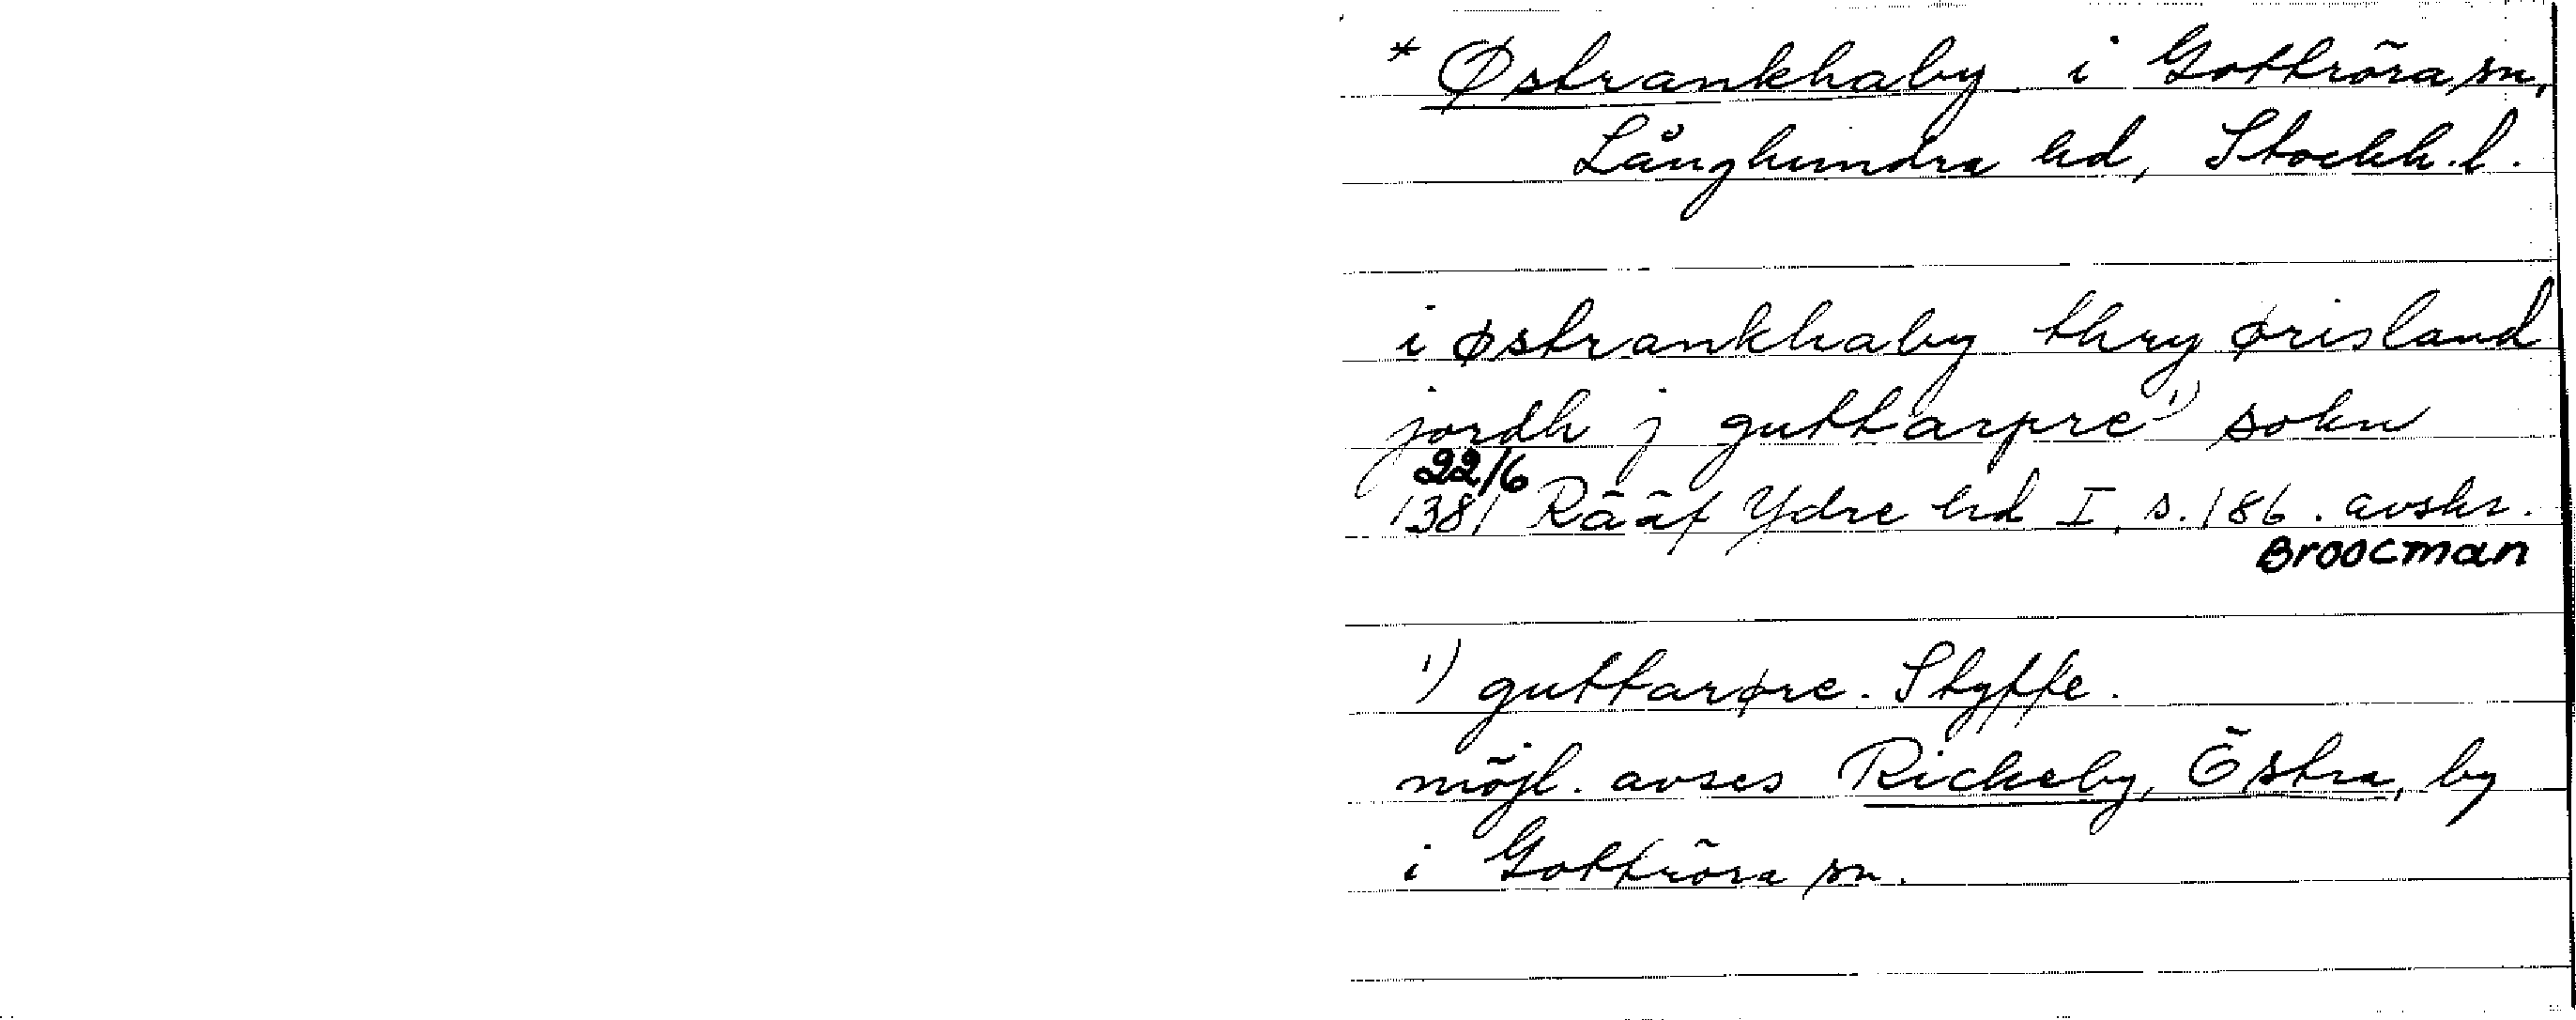 * Østrankhaby i Gottröra sn,
Långhundra hd, Stockh. l.
i østrankhaby thry ørisland
jordh j guttarpre 1) sokn
22/6
1381 Rääf Ydre hd I, s. 186. avskr.
Broocman
1) guttarøre. Styffe.
möjl. avses Rickeby, Östra, by
i Gottröra sn.